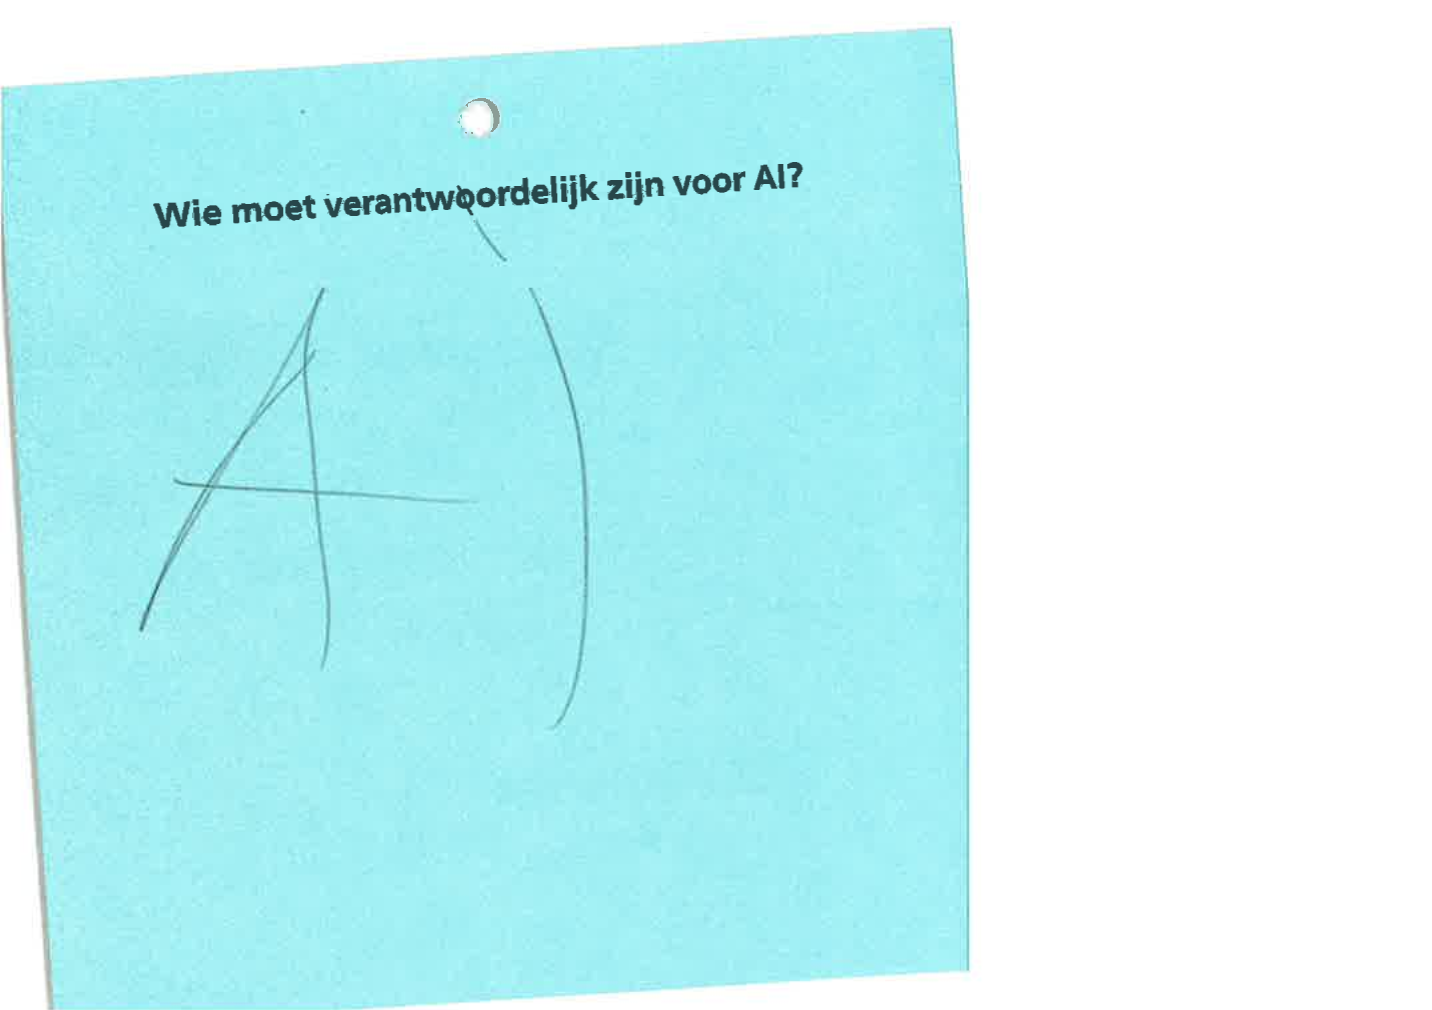 Wie moet verantwoordelijk zijn voor AI?
A)